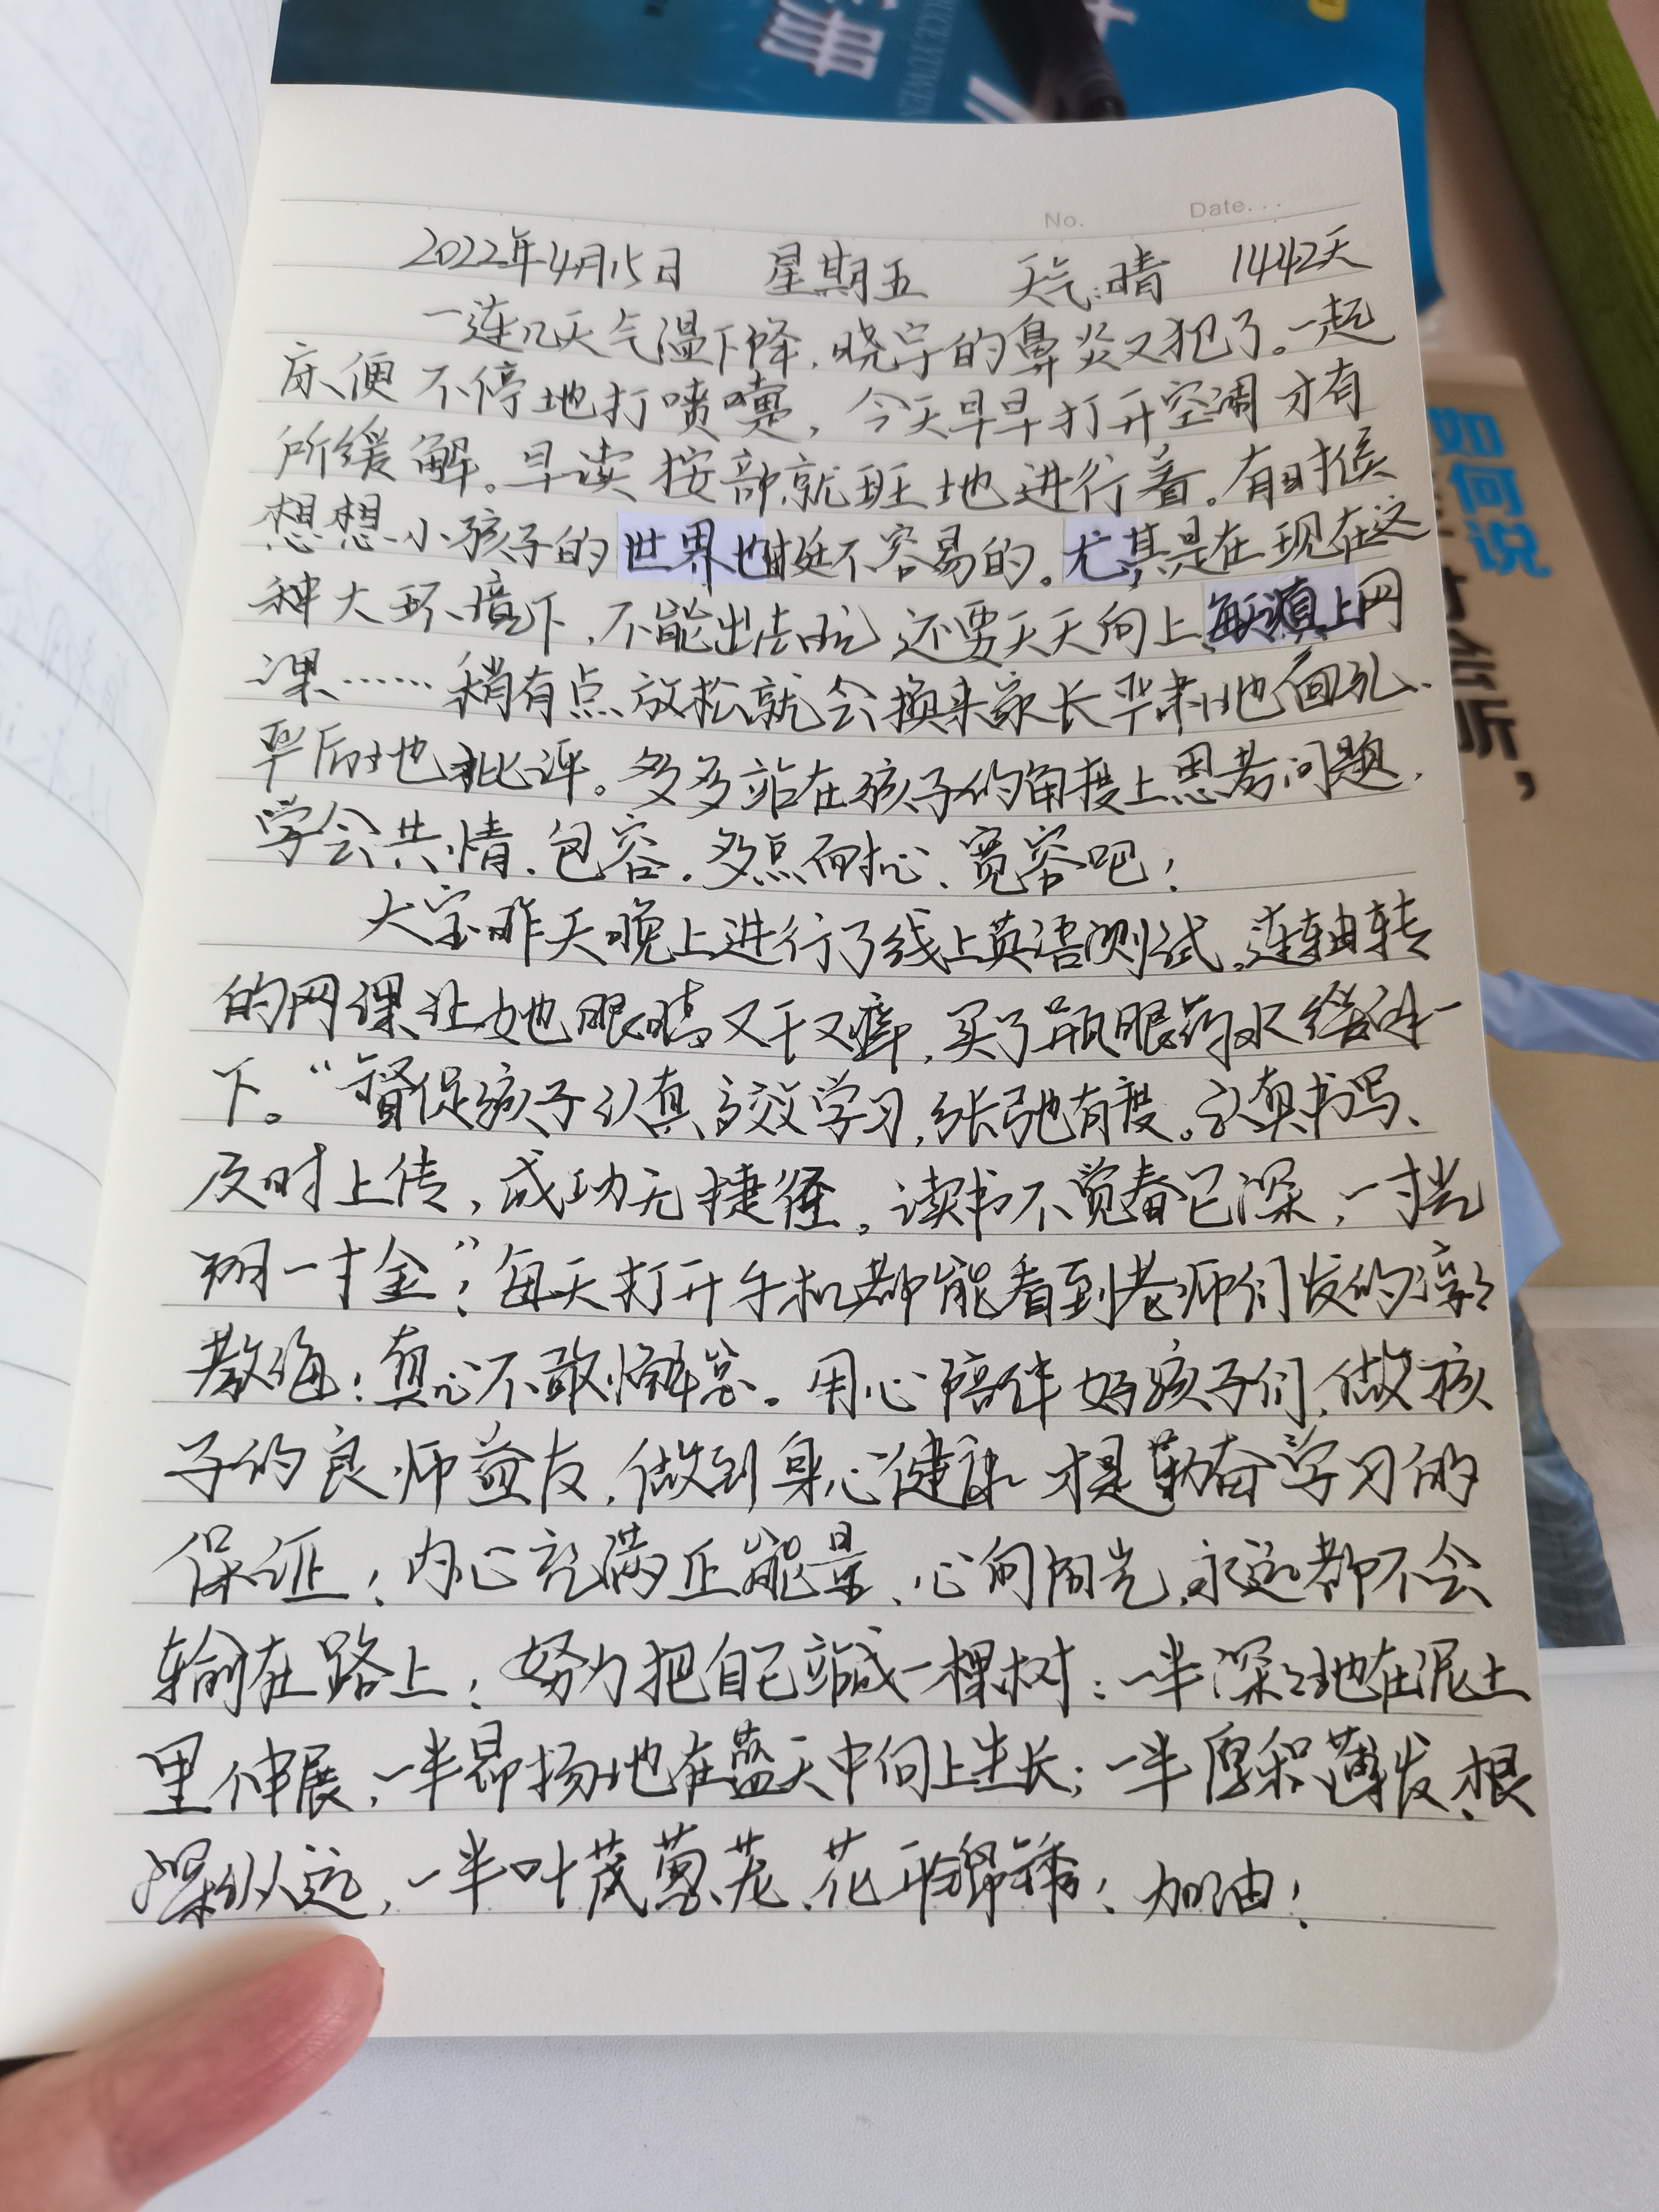 册
No. Date...
2022年4月15日 星期五 天气:晴 1442天
一连几天气温下降,晓宇的鼻炎又犯了。一起
床便不停地打喷嚏,今天早早打开空调才有
所缓解。早读按部就班地进行着。有时候
想想小孩子的世界也挺不容易的。尤其是在现在这
种大环境下,不能出去玩 还要天天向上,每天须上网
课……稍有点放松就会换来家长严肃地面孔、
严厉地批评。多多站在孩子的角度上思考问题,
学会共情、包容。多点耐心、宽容吧!
大宝昨天晚上进行了线上英语测试,连轴转
的网课让她眼睛又干又痒,买了瓶眼药水缓解一
下。“督促孩子认真高效学习,张弛有度。认真书写、
及时上传,成功无捷径。读书不觉春已深,一寸光
阴一寸金”!每天打开手机都能看到老师们发的谆谆
教诲!真心不敢懈怠。用心陪伴好孩子们,做孩
子的良师益友,做到身心健康才是勤奋学习的
保证!内心充满正能量、心向阳光,永远都不会
输在路上!努力把自己站成一棵树:一半深深地在泥土
里伸展,一半昂扬地在蓝天中向上生长;一半厚积薄发、根
深纵远,一半叶茂葱茏、花开锦绣!加油!
如何说
才会听,